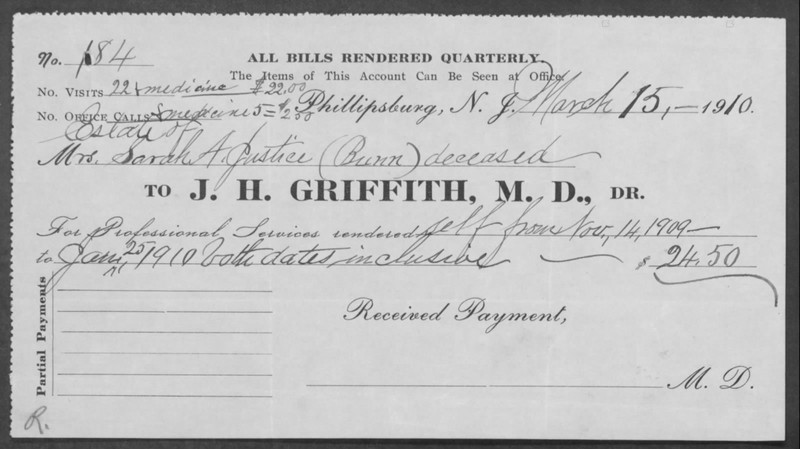 No. 184
ALL BILLS RENDERED QUARTERLY.
The Items of This Account Can Be Seen at Office.
No. Visits 22 & medicine $22.00
No. Office Calls & medicine 5 = $2.50
Phillipsburg, N. J. March 15, — 1910.
Estate of
Mrs. Sarah A. Justice (Bunn) deceased
TO J. H. GRIFFITH, M. D., DR.
For Professional Services rendered self from Nov, 14, 1909 —
to Jany, 25 1910 both dates inclusive $ 24.50
Partial Payments
Received Payment,
M. D.
R.